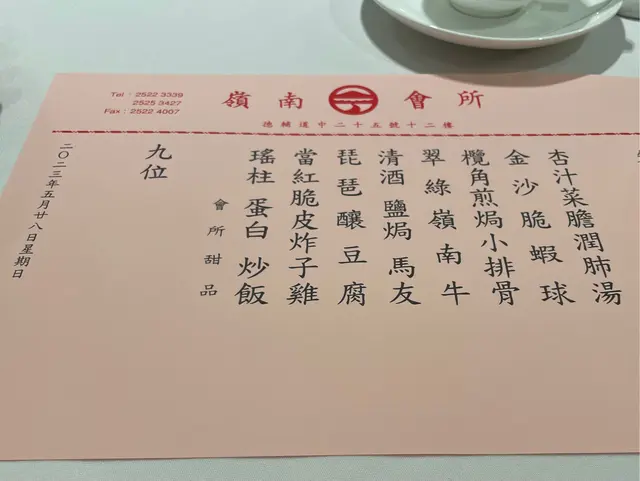 Tel : 2522 3339
2525 3427
Fax : 2522 4007
嶺南會所
德輔道中二十五號十二樓
杏汁菜膽潤肺湯
金沙脆蝦球
欖角煎焗小排骨
翠綠嶺南牛
清酒鹽焗馬友
琵琶釀豆腐
當紅脆皮炸子雞
瑤柱蛋白炒飯
會所甜品
九位
二〇二三年五月廿八日星期日